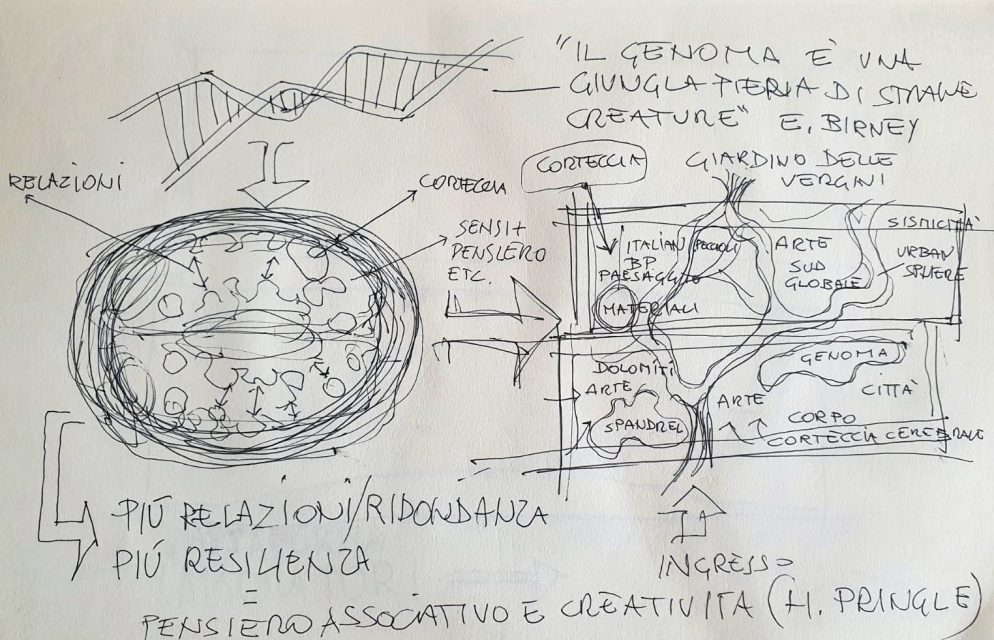 "IL GENOMA È UNA
GIUNGLA PIENA DI STRANE
CREATURE" E. BIRNEY
RELAZIONI
CORTECCIA
SENSI+
PENSIERO
ETC.
CORTECCIA
GIARDINO DELLE
VERGINI
ITALIAN
BP
PAESAGGIO
MATERIALI
PECCIOLI
ARTE
SUD
GLOBALE
SISMICITÀ
URBAN
SPHERE
DOLOMITI
ARTE
SPANDREL
GENOMA
CITTÀ
ARTE
CORPO
CORTECCIA CEREBRALE
A
INGRESSO
PIÚ RELAZIONI/RIDONDANZA
PIÚ RESILIENZA
=
PENSIERO ASSOCIATIVO E CREATIVITÀ (H. PRINGLE)